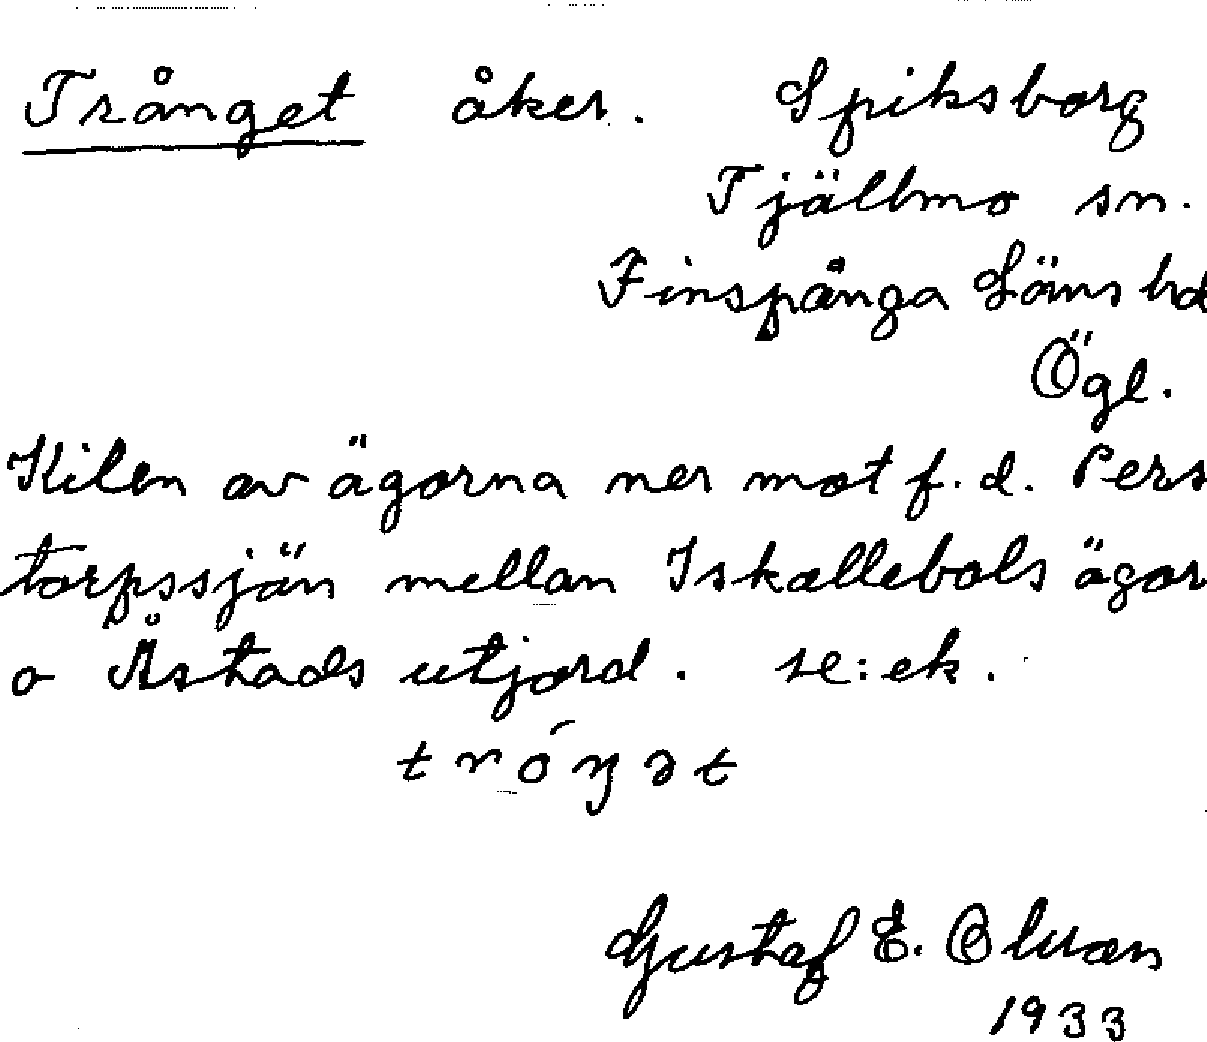 Trånget åker. Spiksborg
Tjällmo sn.
Finspånga Läns hd
Ögl.
Kilen av ägorna ner mot f.d. Pers
torpssjön mellan Iskallebols ägor
o Åstads utjord. se: ek.
tróŋət
Gustaf E.
1933